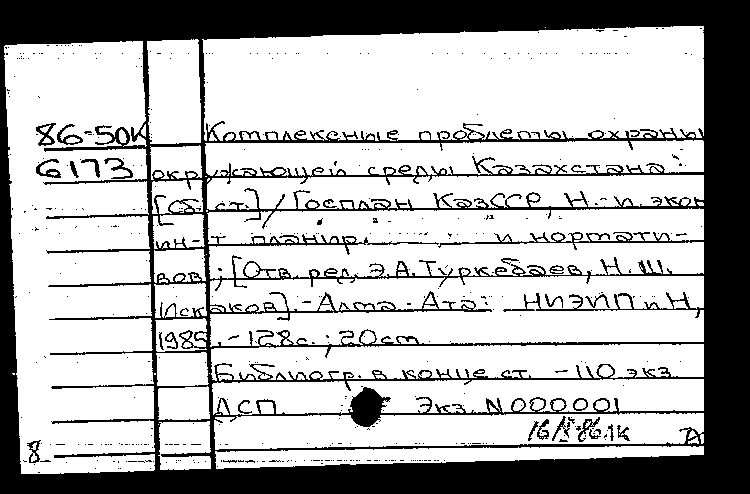 86-50К Комплексные проблемы охраны
6173 окружающей среды Казахстана:
[Сб. ст.] / Госплан КазССР, Н.-и. экон.
ин-т планир. и нормати-
вов; [Отв. ред. Э.А.Туркебаев, Н.Ш.
Искаков].-Алма-Ата: НИЭИПиН,
1985.-128с.; 20см
Библиогр. в конце ст. -110 экз.
ДСП. Экз. N000001
8